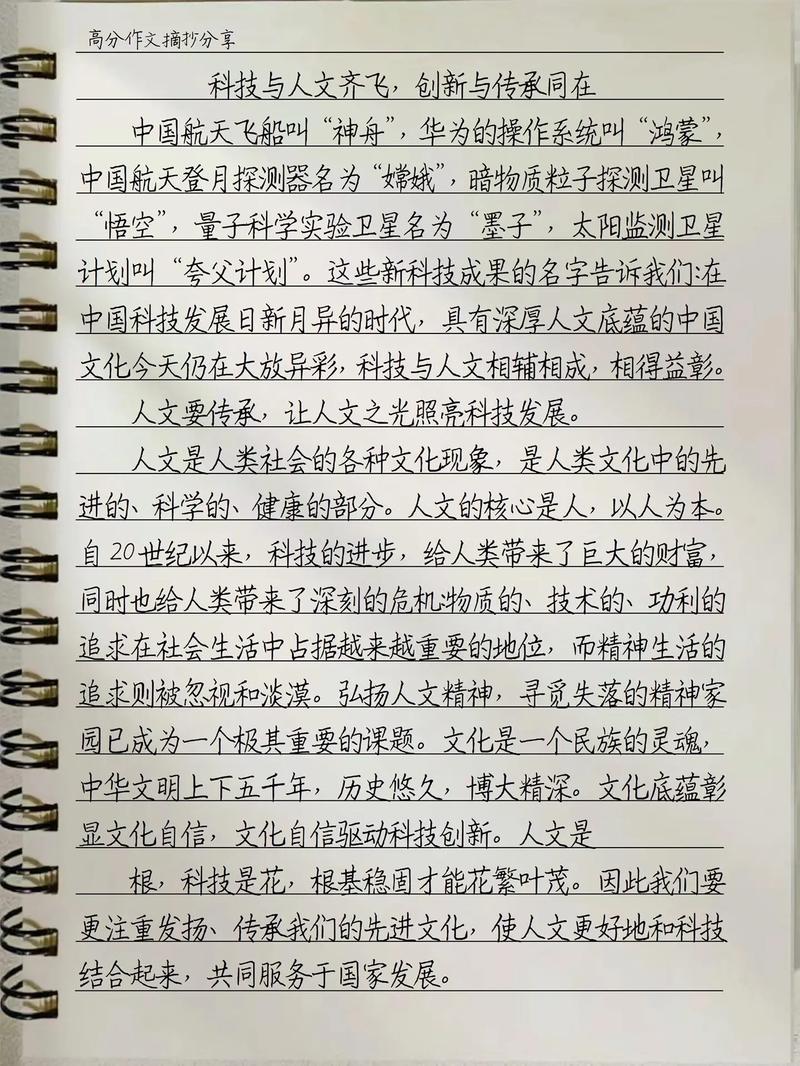 高分作文摘抄分享
科技与人文齐飞，创新与传承同在
中国航天飞船叫“神舟”，华为的操作系统叫“鸿蒙”，
中国航天登月探测器名为“嫦娥”，暗物质粒子探测卫星叫
“悟空”，量子科学实验卫星名为“墨子”，太阳监测卫星
计划叫“夸父计划”。这些新科技成果的名字告诉我们:在
中国科技发展日新月异的时代，具有深厚人文底蕴的中国
文化今天仍在大放异彩，科技与人文相辅相成，相得益彰。
人文要传承，让人文之光照亮科技发展。
人文是人类社会的各种文化现象，是人类文化中的先
进的、科学的、健康的部分。人文的核心是人，以人为本。
自20世纪以来，科技的进步，给人类带来了巨大的财富，
同时也给人类带来了深刻的危机:物质的、技术的、功利的
追求在社会生活中占据越来越重要的地位，而精神生活的
追求则被忽视和淡漠。弘扬人文精神，寻觅失落的精神家
园已成为一个极其重要的课题。文化是一个民族的灵魂，
中华文明上下五千年，历史悠久，博大精深。文化底蕴彰
显文化自信，文化自信驱动科技创新。人文是
根，科技是花，根基稳固才能花繁叶茂。因此我们要
更注重发扬、传承我们的先进文化，使人文更好地和科技
结合起来，共同服务于国家发展。